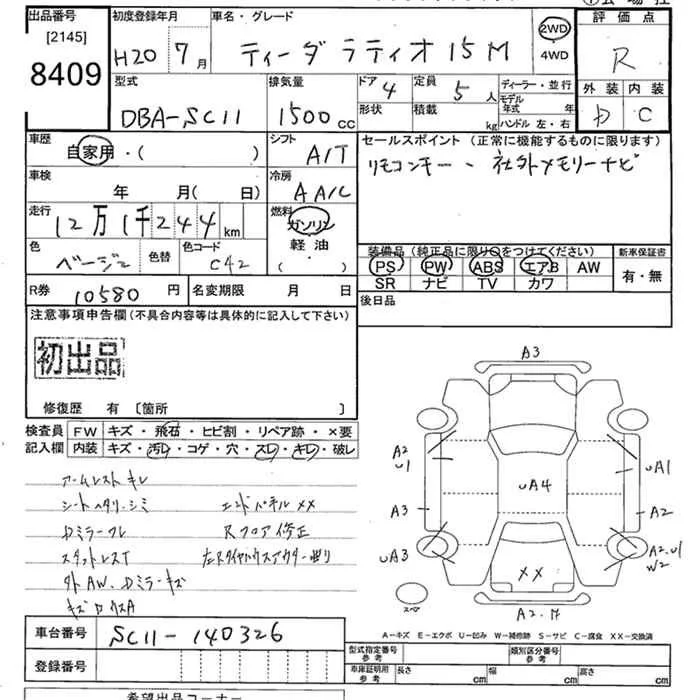 出品番号
[2145]
8409
初度登録年月
H20 7月
車名・グレード
ティーダ ラティオ 15M
2WD
・
4WD
評価点
R
外装 内装
D C
型式
DBA-SC11
排気量
1500cc
ドア 4
定員 5人
形状
積載 kg
ディーラー・並行
モデル年式 年
ハンドル 左・右
車歴
自家用・( )
シフト
A/T
セールスポイント(正常に機能するものに限ります)
リモコンキー、社外メモリーナビ
車検
年 月( 日)
冷房
AA/C
走行
12万1千244km
燃料
ガソリン
軽油
( ・ )
色
ベージュ
色替
色コード
C42
装備品(純正品に限り○をつけてください)
PS PW ABS エアB AW
SR ナビ TV カワ
新車保証書
有・無
R券 10580円
名変期限 月 日
後日品
注意事項申告欄(不具合内容等は具体的に記入して下さい)
初出品
修復歴 有 〔箇所 〕
検査員記入欄
FW キズ・飛石・ヒビ割・リペア跡・×要
内装 キズ・汚レ・コゲ・穴・スレ・キレ・破レ
アームレストキレ
シートヘタリ・シミ
エンドパネル××
Dミラーワレ
Rフロア修正
スタットレスT
外AW、Dミラーキズ
A3
A2
U1
UA1
UA4
A3
A2
UA3
A2・U1
W2
××
スペア
A2・
A-キズ E-エクボ U-凹み W-補修跡 S-サビ C-腐食 XX-交換済
車台番号
SC11-140326
登録番号
型式指定番号
参考
類別区分番号
参考
車庫証明用
参考
長さ cm
幅 cm
高さ cm
希望出品コーナー